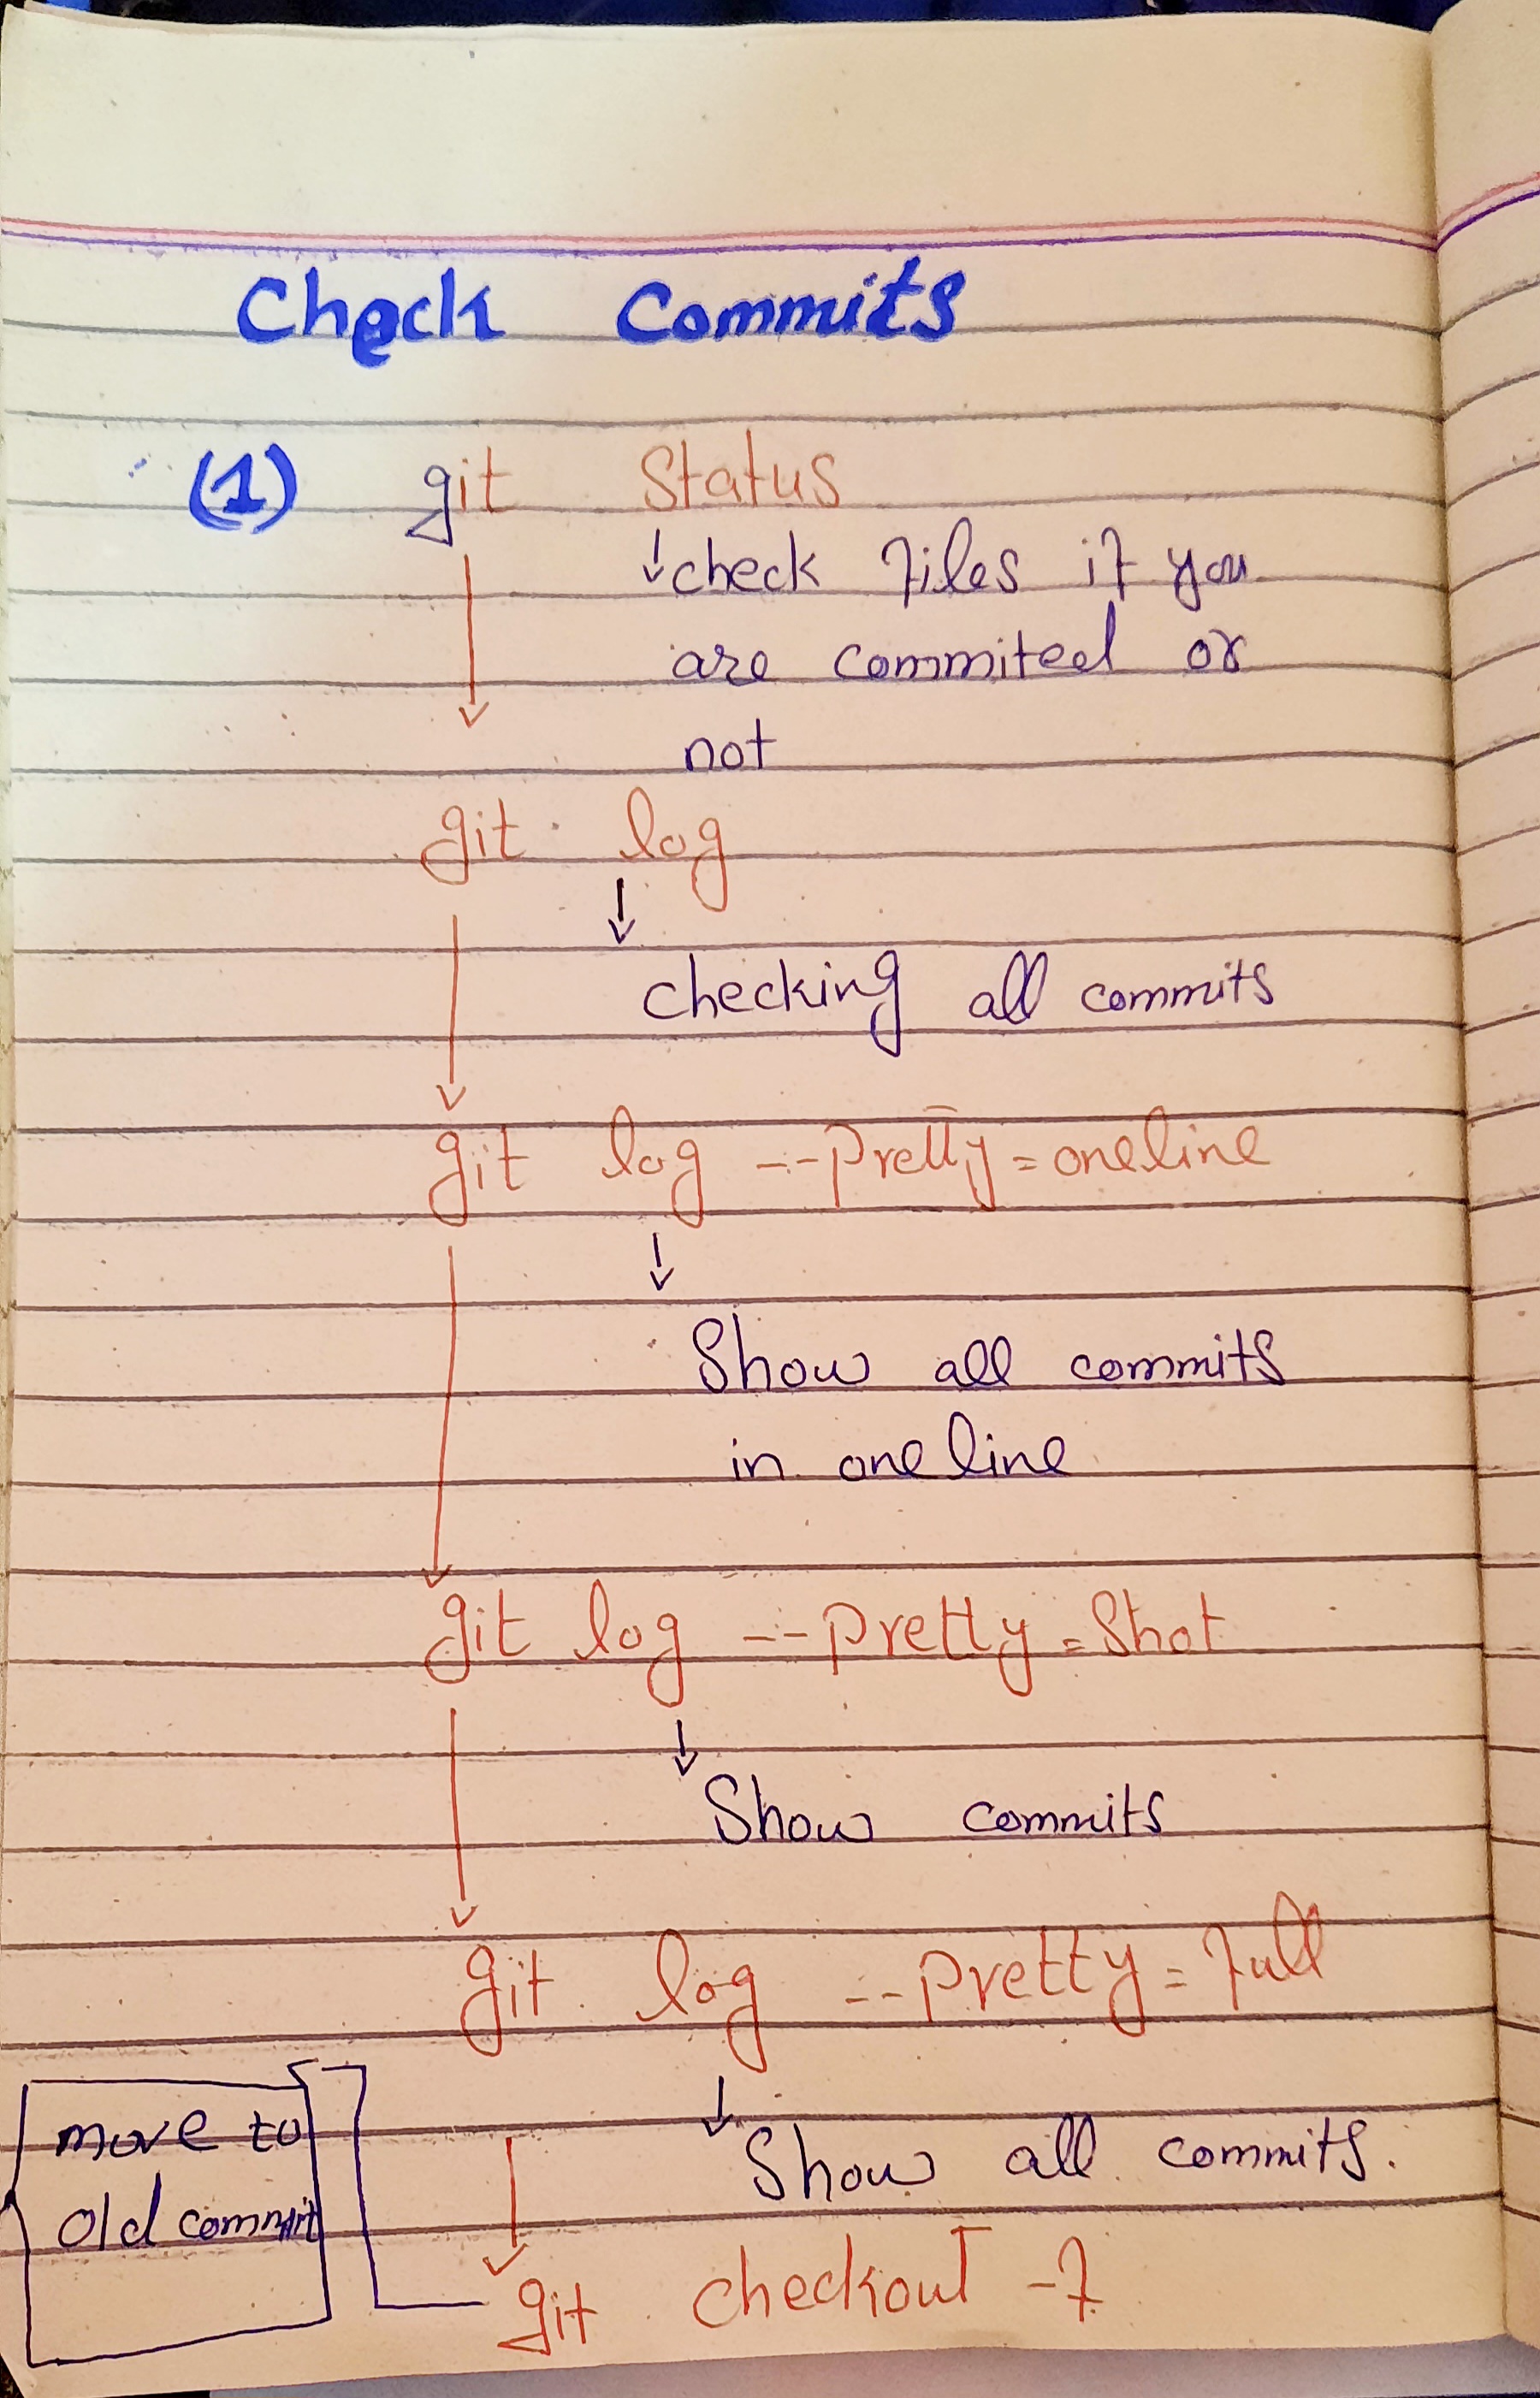 Check Commits
(1) git Status
check files if you
are commiteed or
not
git log
checking all commits
git log --pretty=oneline
Show all commits
in oneline
git log --pretty=Shot
Show commits
git log --pretty=full
Show all commits.
move to
old commit
git checkout -f